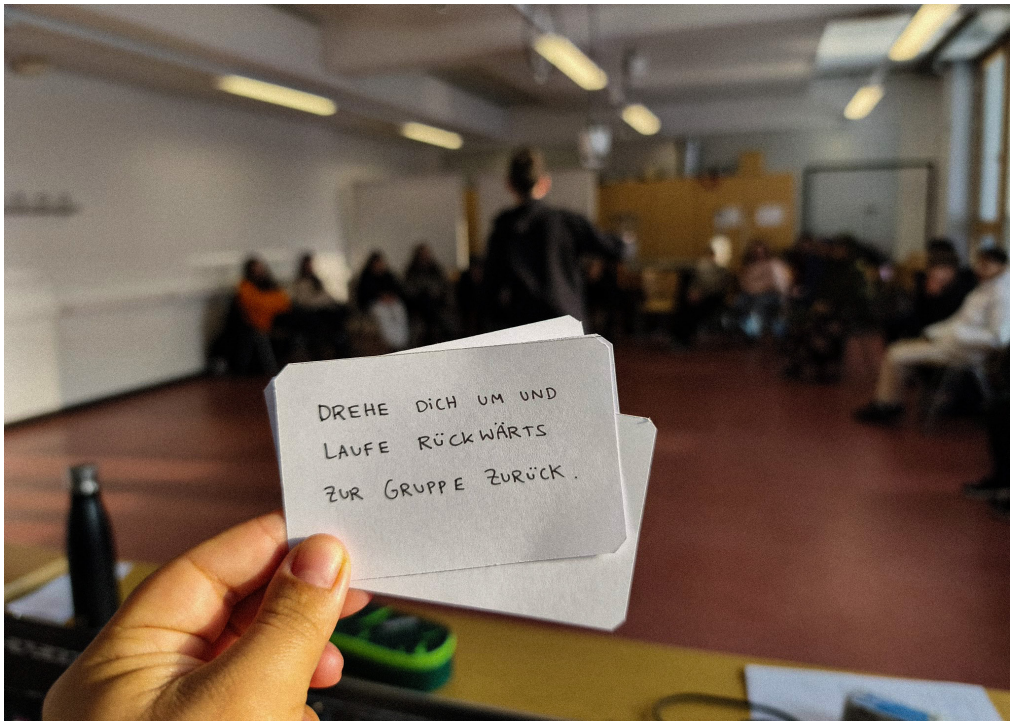 DREHE DICH UM UND
LAUFE RÜCKWÄRTS
ZUR GRUPPE ZURÜCK.